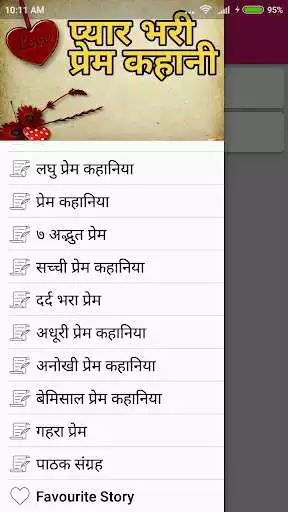 10:11 AM
95%
Love
प्यार भरी
प्रेम कहानी
लघु प्रेम कहानिया
प्रेम कहानिया
७ अद्भुत प्रेम
सच्ची प्रेम कहानिया
दर्द भरा प्रेम
अधूरी प्रेम कहानिया
अनोखी प्रेम कहानिया
बेमिसाल प्रेम कहानिया
गहरा प्रेम
पाठक संग्रह
Favourite Story